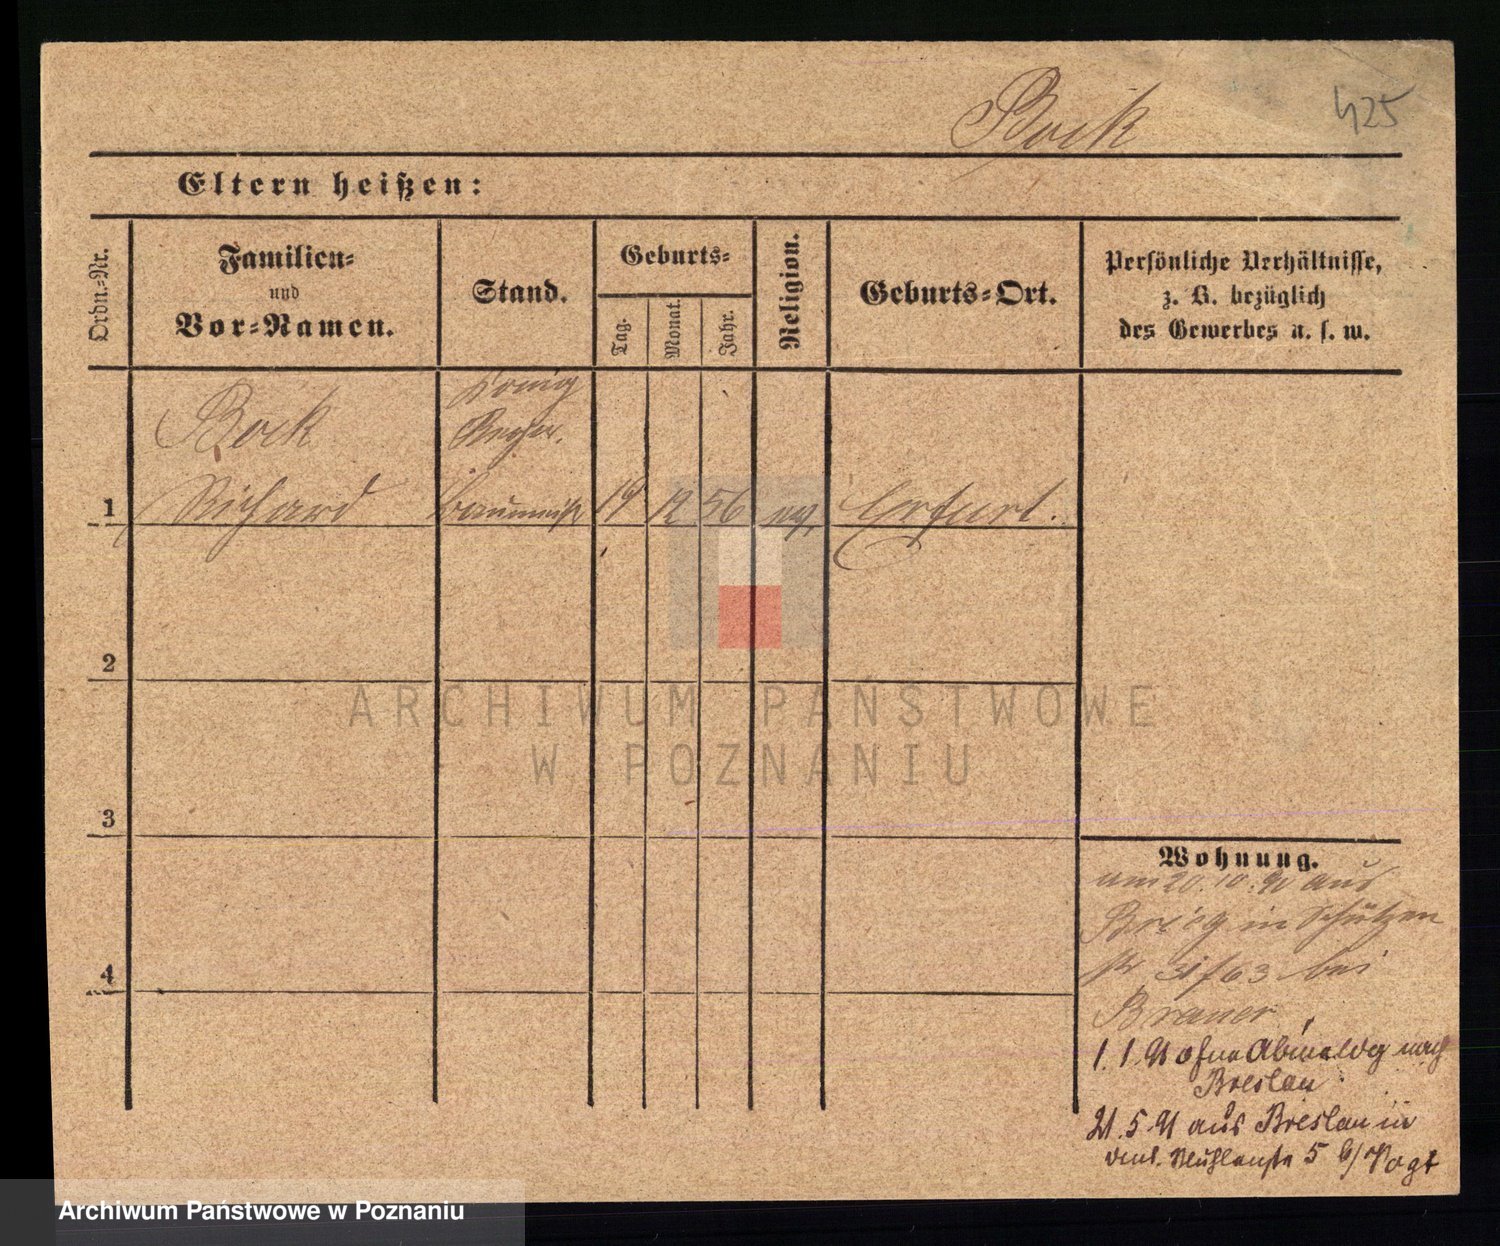 Bock
425
Eltern heißen:
Ordn.-Nr.
Familien-
und
Vor-Namen.
Stand.
Geburts-
Tag.
Monat.
Jahr.
Religion.
Geburts-Ort.
Persönliche Verhältnisse,
z. B. bezüglich
des Gewerbes u. s. w.
Bock
König
Regier.
1 Richard Baumeistr 19 12 56 Erfurt.
2
3
4
Wohnung.
am 20.10.90 aus
Brieg in Schützen
str 31/63 bei
Brauer
1.1.91 ohne Abmeldg nach
Breslau
21.5.91 aus Breslau in
Mühlenstr 5 b/Vogt
ARCHIWUM PAŃSTWOWE
W POZNANIU
Archiwum Państwowe w Poznaniu